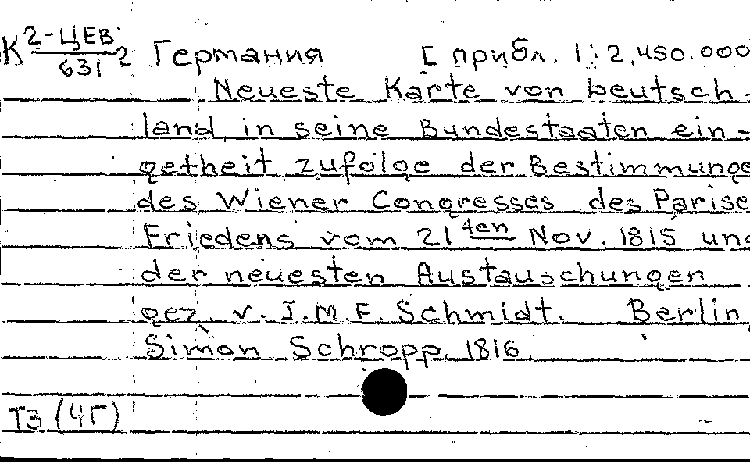 К 2-ЦЕВ/631 2 Германия [прибл. 1:2,450.000
Neueste Karte von Deutsch-
land in seine Bundestaaten ein-
getheit zufolge der Bestimmunge
des Wiener Congresses des Parise
Friedens vom 21 ten Nov. 1815 und
der neuesten Austauschungen
gez. v. J.M.F. Schmidt. Berlin,
Simon Schropp. 1816.
Тз (4г)